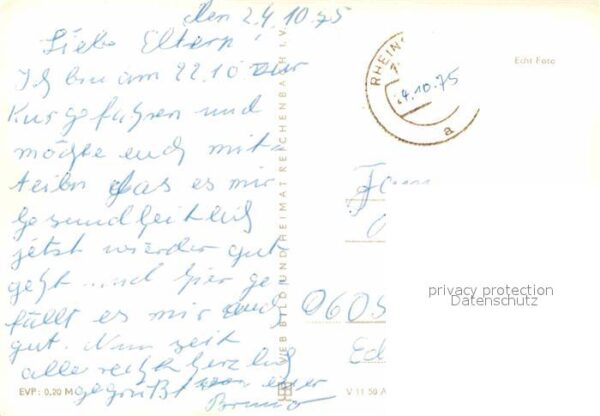 den 24.10.75
Liebe Eltern!
Ich bin am 22.10 zur
Kur gefahren und
möchte euch mit-
teiln das es mir
gesundheitlich
jetzt wieder gut
geht und hier ge
fällt es mir auch
gut. Nun seit
alle recht herzlich
gegrüßt von euer
Bruno
EVP: 0,20 M
VEB BILD UND HEIMAT REICHENBACH I. V.
V 11 50 A
Echt Foto
RHEINS
24.10.75
a
Fam
0605
Ed
privacy protection
Datenschutz